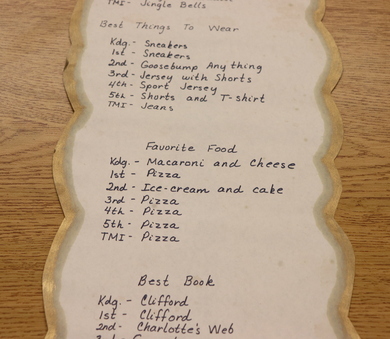 TMI - Jingle Bells
Best Things To Wear
Kdg. - Sneakers
1st - Sneakers
2nd - Goosebump Anything
3rd - Jersey with Shorts
4th - Sport Jersey
5th - Shorts and T-shirt
TMI - Jeans
Favorite Food
Kdg. - Macaroni and Cheese
1st - Pizza
2nd - Ice-cream and cake
3rd - Pizza
4th - Pizza
5th - Pizza
TMI - Pizza
Best Book
Kdg. - Clifford
1st - Clifford
2nd - Charlotte's Web